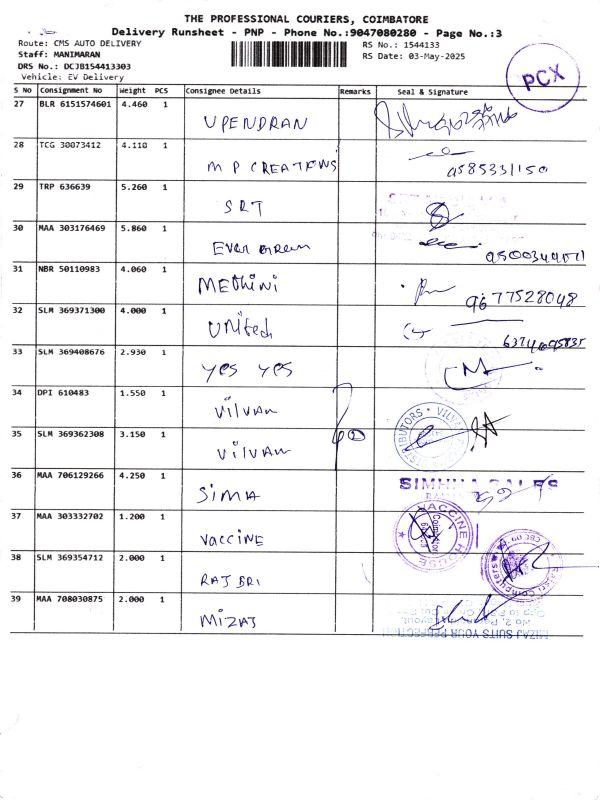 THE PROFESSIONAL COURIERS, COIMBATORE
Delivery Runsheet - PNP - Phone No.:9047080280 - Page No.:3
Route: CMS AUTO DELIVERY
RS No.: 1544133
Staff: MANIMARAN
RS Date: 03-May-2025
DRS No.: DCJB154413303
Vehicle: EV Delivery
PCX
S No Consignment No Weight PCS Consignee Details Remarks Seal & Signature
27 BLR 6151574601 4.460 1
UPENDRAN
28 TCG 30073412 4.110 1
M P CREATIONS 9585331150
29 TRP 636639 5.260 1
SRT
30 MAA 303176469 5.860 1
Ever Green
31 NBR 50110983 4.060 1
Methini 9677528048
32 SLM 369371300 4.000 1
United
33 SLM 369408676 2.930 1
yes yes
34 DPI 610483 1.550 1
Vilvam
35 SLM 369362308 3.150 1
Vilvam 2
36 MAA 706129266 4.250 1
SIMHA SALES
SIMA
37 MAA 303332702 1.200 1
VACCINE HOUSE
Vaccine
38 SLM 369354712 2.000 1
RAJ BRI
39 MAA 708030875 2.000 1
MIZAJ
MIZAJ SUITS YOUR PERFECTION